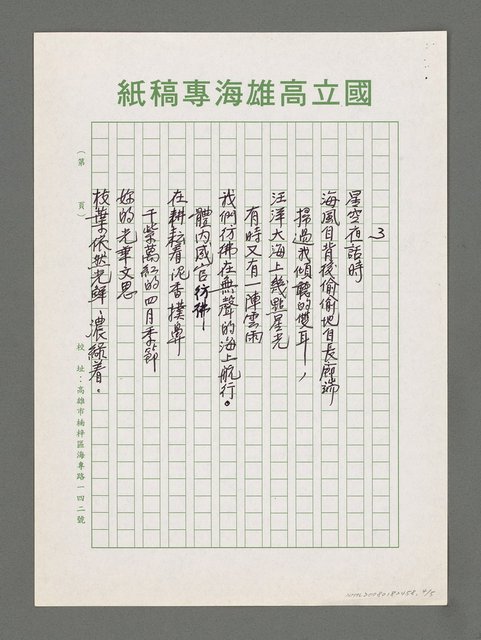 國立高雄海專稿紙
3
星空夜話時
海風自背後偷偷地自長廊端
掃過我傾聽的雙耳——，
汪洋大海上幾點星光
有時又有一陣雲雨
我們彷彿在無聲的海上航行。
體內感官彷彿
在耕耘着泥香撲鼻
千紫萬紅的四月季節
妳的光華文思
枝葉依然光鮮、濃綠着。
（第　頁）
校址：高雄市楠梓區海專路一四二號
NML20080180458 4/5